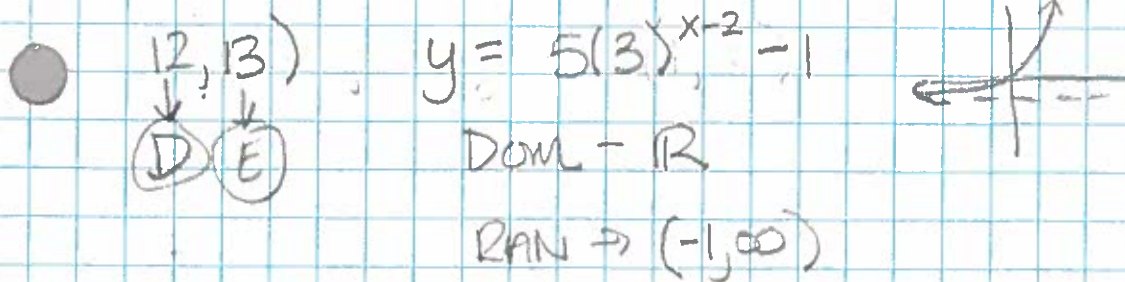 12, 13) y = 5(3)^{x-2} - 1
D E Dom - ℝ
RAN → (-1, ∞)